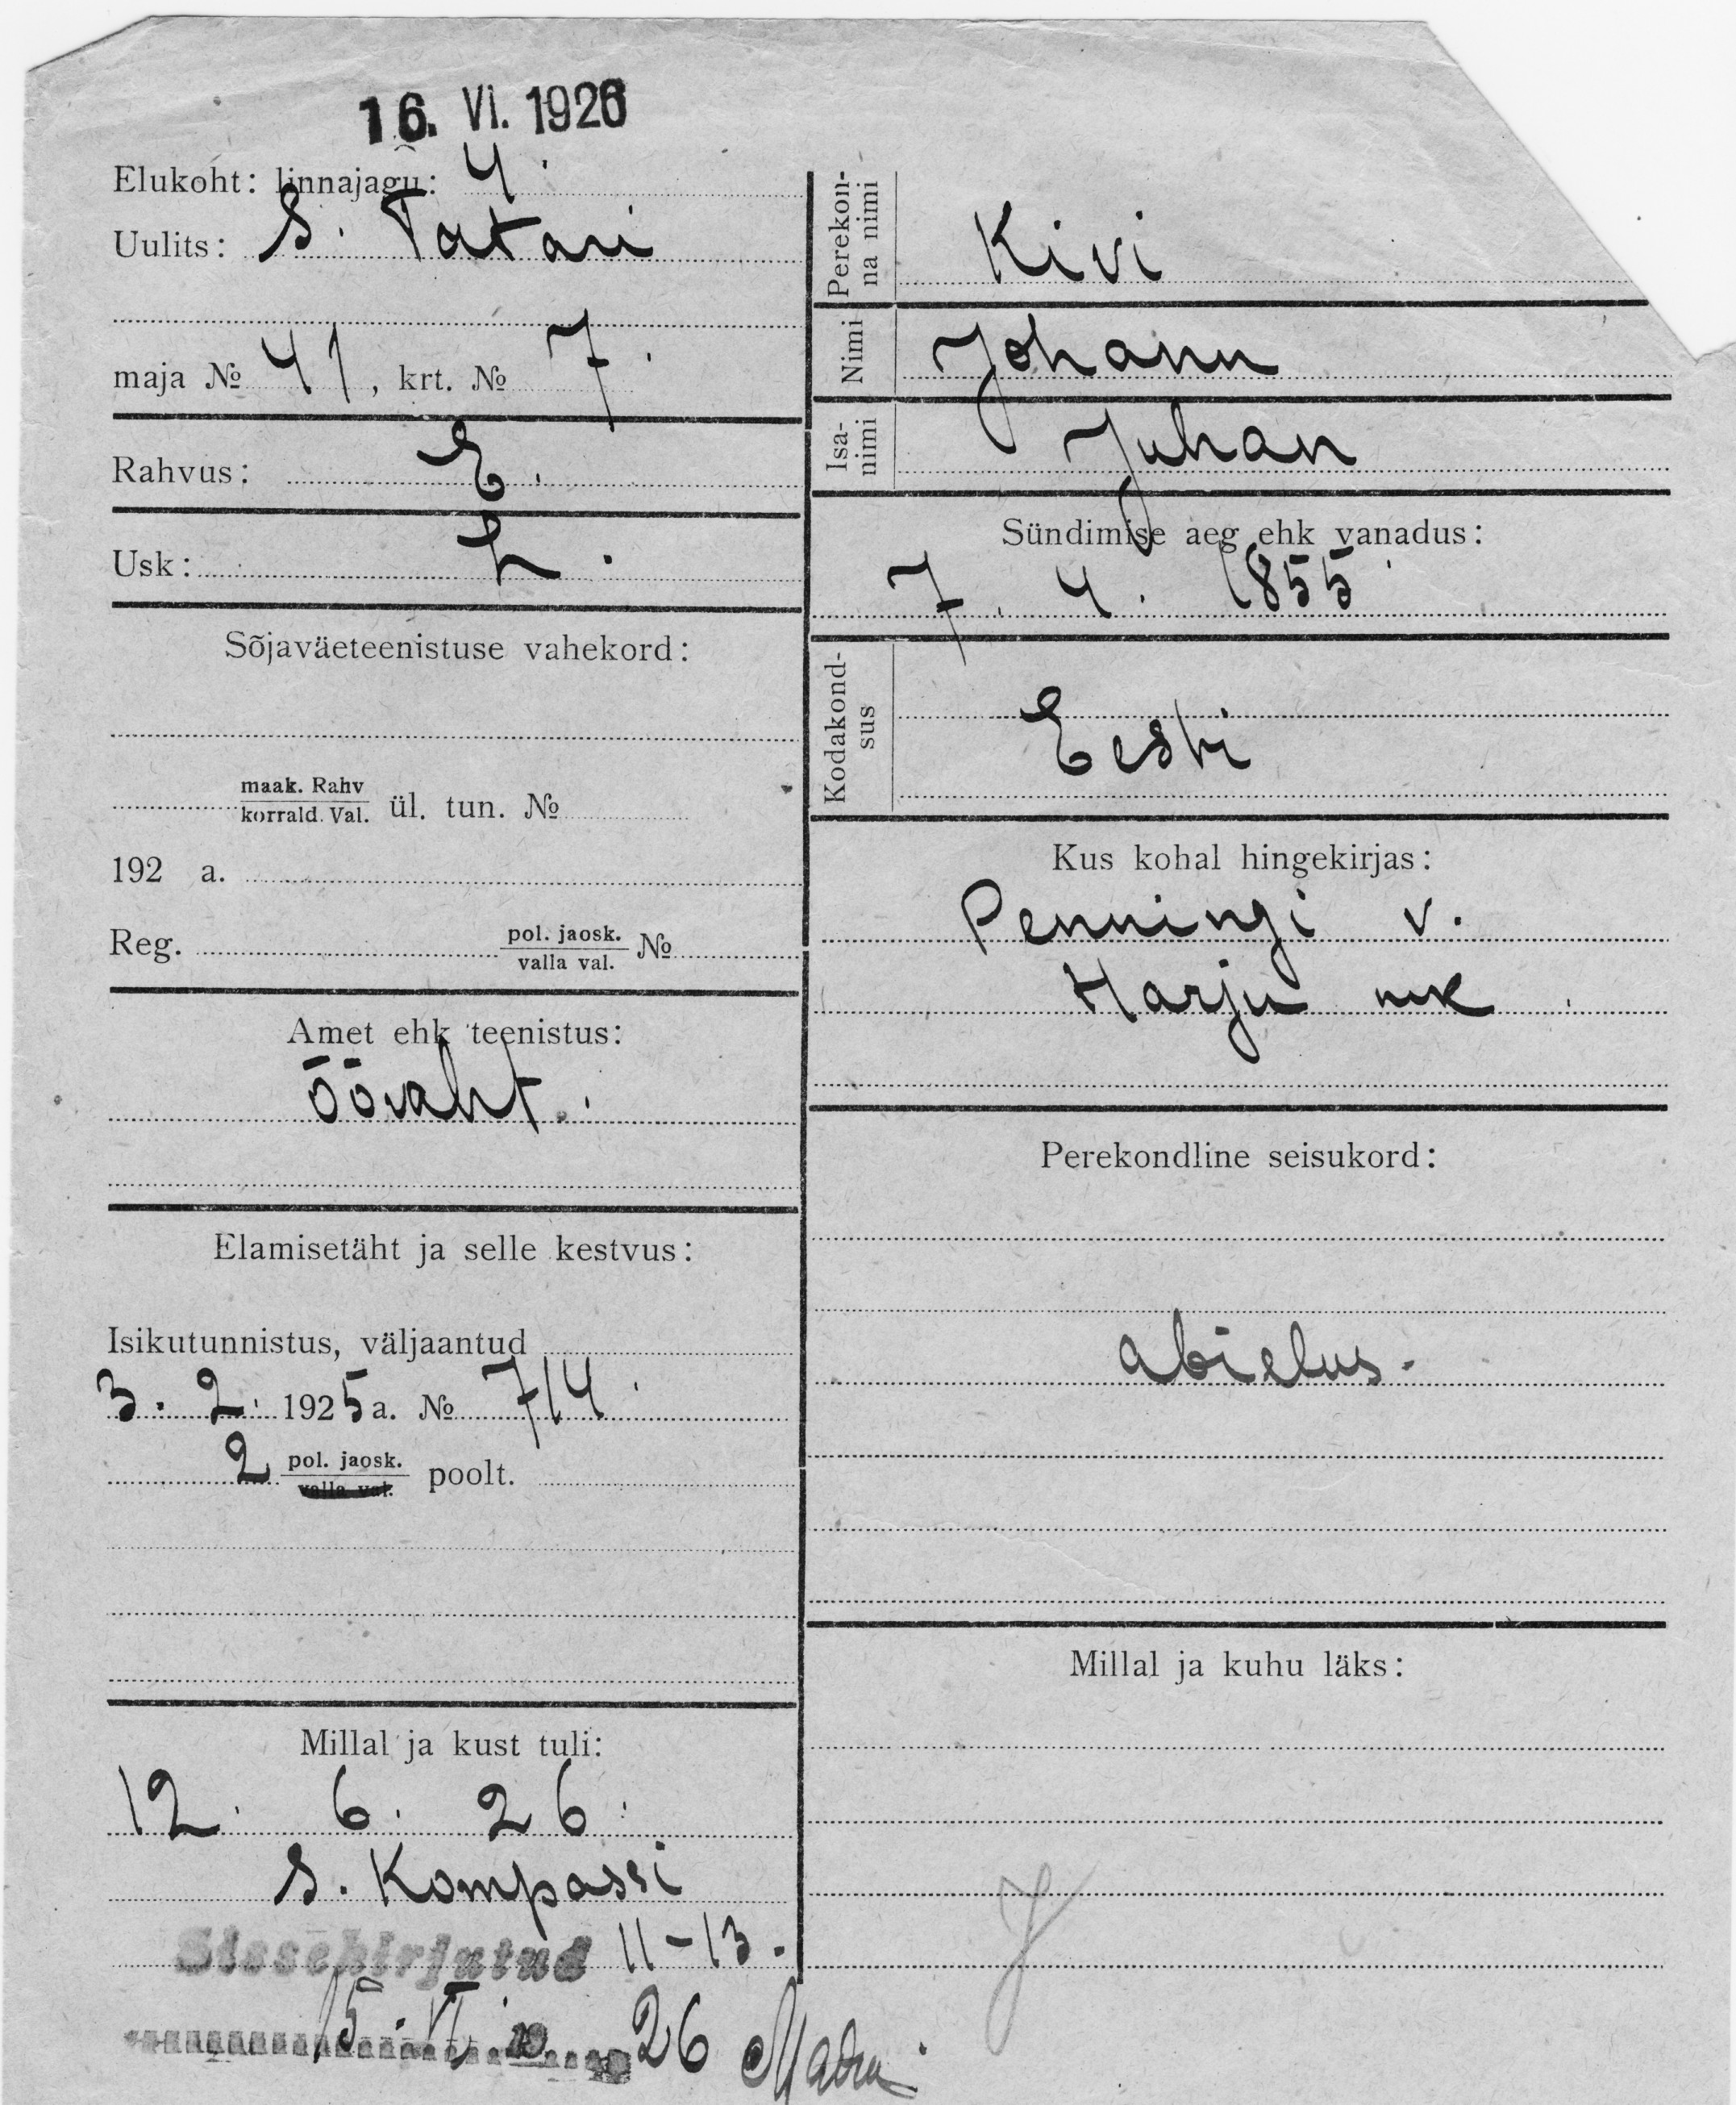 16. VI. 1926
Elukoht: linnajagu: 4.
Uulits: S. Tatari
maja № 41, krt. № 7.
Rahvus: E.
Usk: L.
Sõjaväeteenistuse vahekord:
maak. Rahv
korrald. Val. ül. tun. №
192 a.
Reg. pol. jaosk.
valla val. №
Amet ehk teenistus:
öövaht.
Elamisetäht ja selle kestvus:
Isikutunnistus, väljaantud
3. 2. 1925 a. № 714.
2 pol. jaosk.
valla val. poolt.
Millal ja kust tuli:
12. 6. 26.
S. Kompassi
Sissekirjutud 11-13.
15. VI 19 26
Perekon-
na nimi Kivi
Nimi Johann
Isa-
nimi Juhan
Sündimise aeg ehk vanadus:
7. 4. 1855.
Kodakond-
sus Eesti
Kus kohal hingekirjas:
Penningi v.
Harju mk.
Perekondline seisukord:
abielus.
Millal ja kuhu läks: